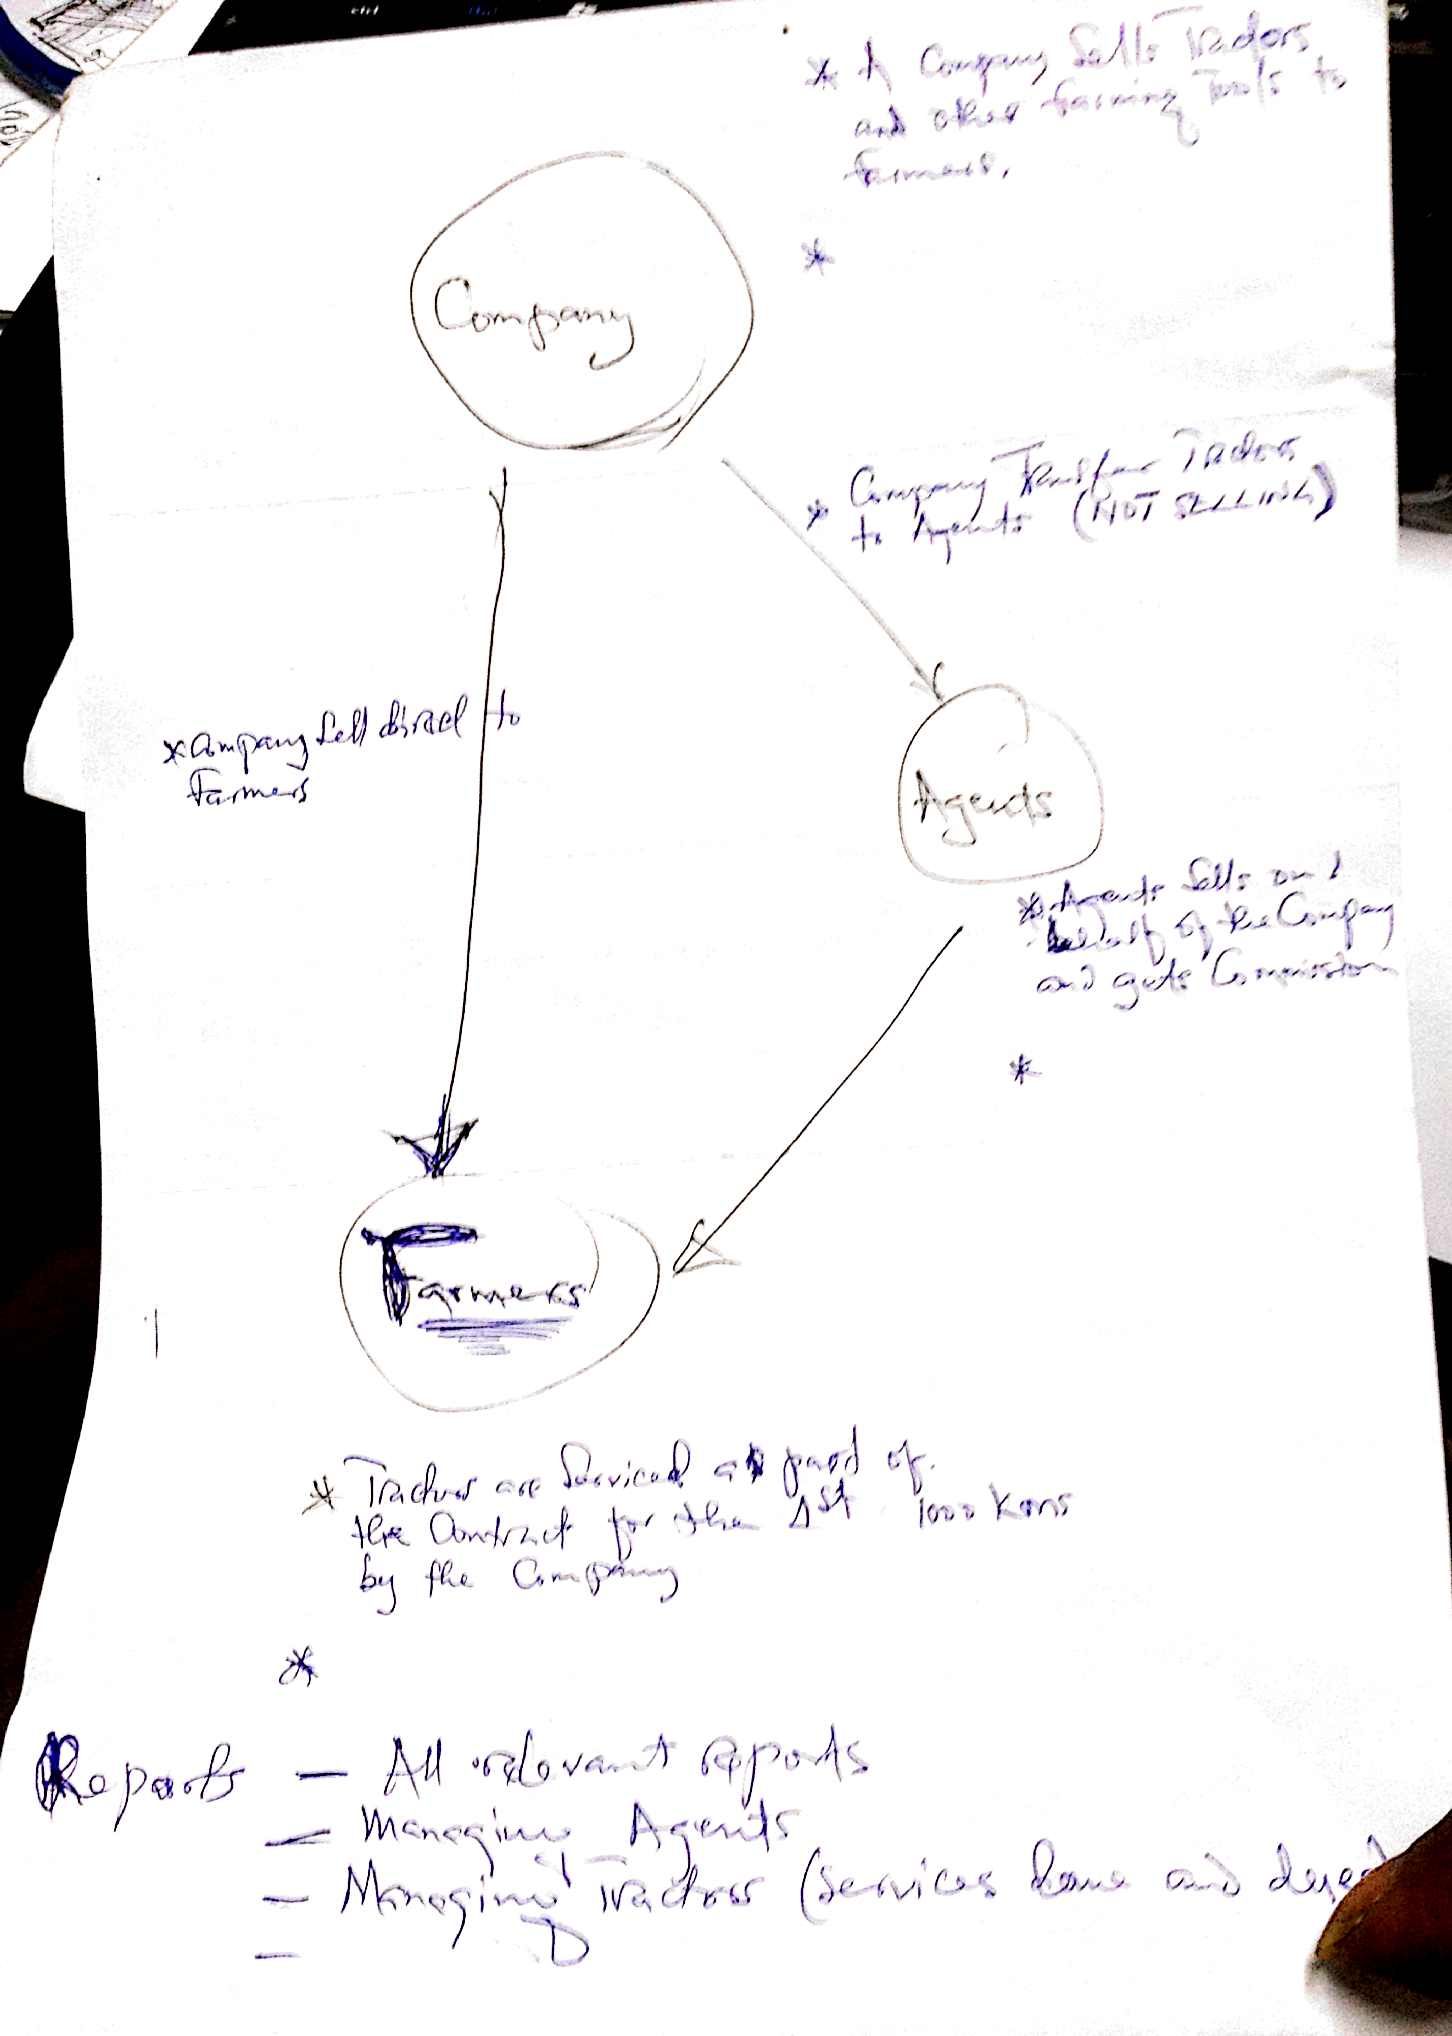 ctrl
* A Company Sells Tractors
and other farming Tools to
farmers.
*
Company
* Company Transfer Tractors
to Agents (NOT SELLING)
* Company Sell direct to
Farmers
Agents
* Agents Sells on
behalf of the Company
and gets Commission
*
Farmers
* Tractors are Serviced as part of
the Contract for the 1st 1000 Kms
by the Company
*
Reports - All relevant reports
- Managing Agents
- Managing Tractors (Services done and
-